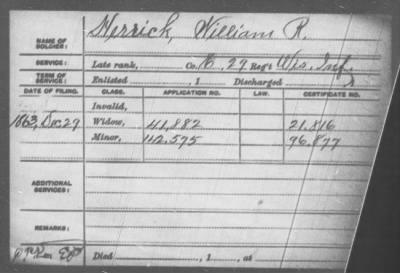 Merrick, William R.
NAME OF SOLDIER:
SERVICE: Late rank, Co. K. 29 Reg't Wis. Inf.
TERM OF SERVICE: Enlisted , 1 Discharged
DATE OF FILING. CLASS. APPLICATION NO. LAW. CERTIFICATE NO.
Invalid,
1863, Dec 29 Widow, 41,882 21,816
Minor, 142,575 96,877
ADDITIONAL SERVICES:
REMARKS:
Died , 1 , at